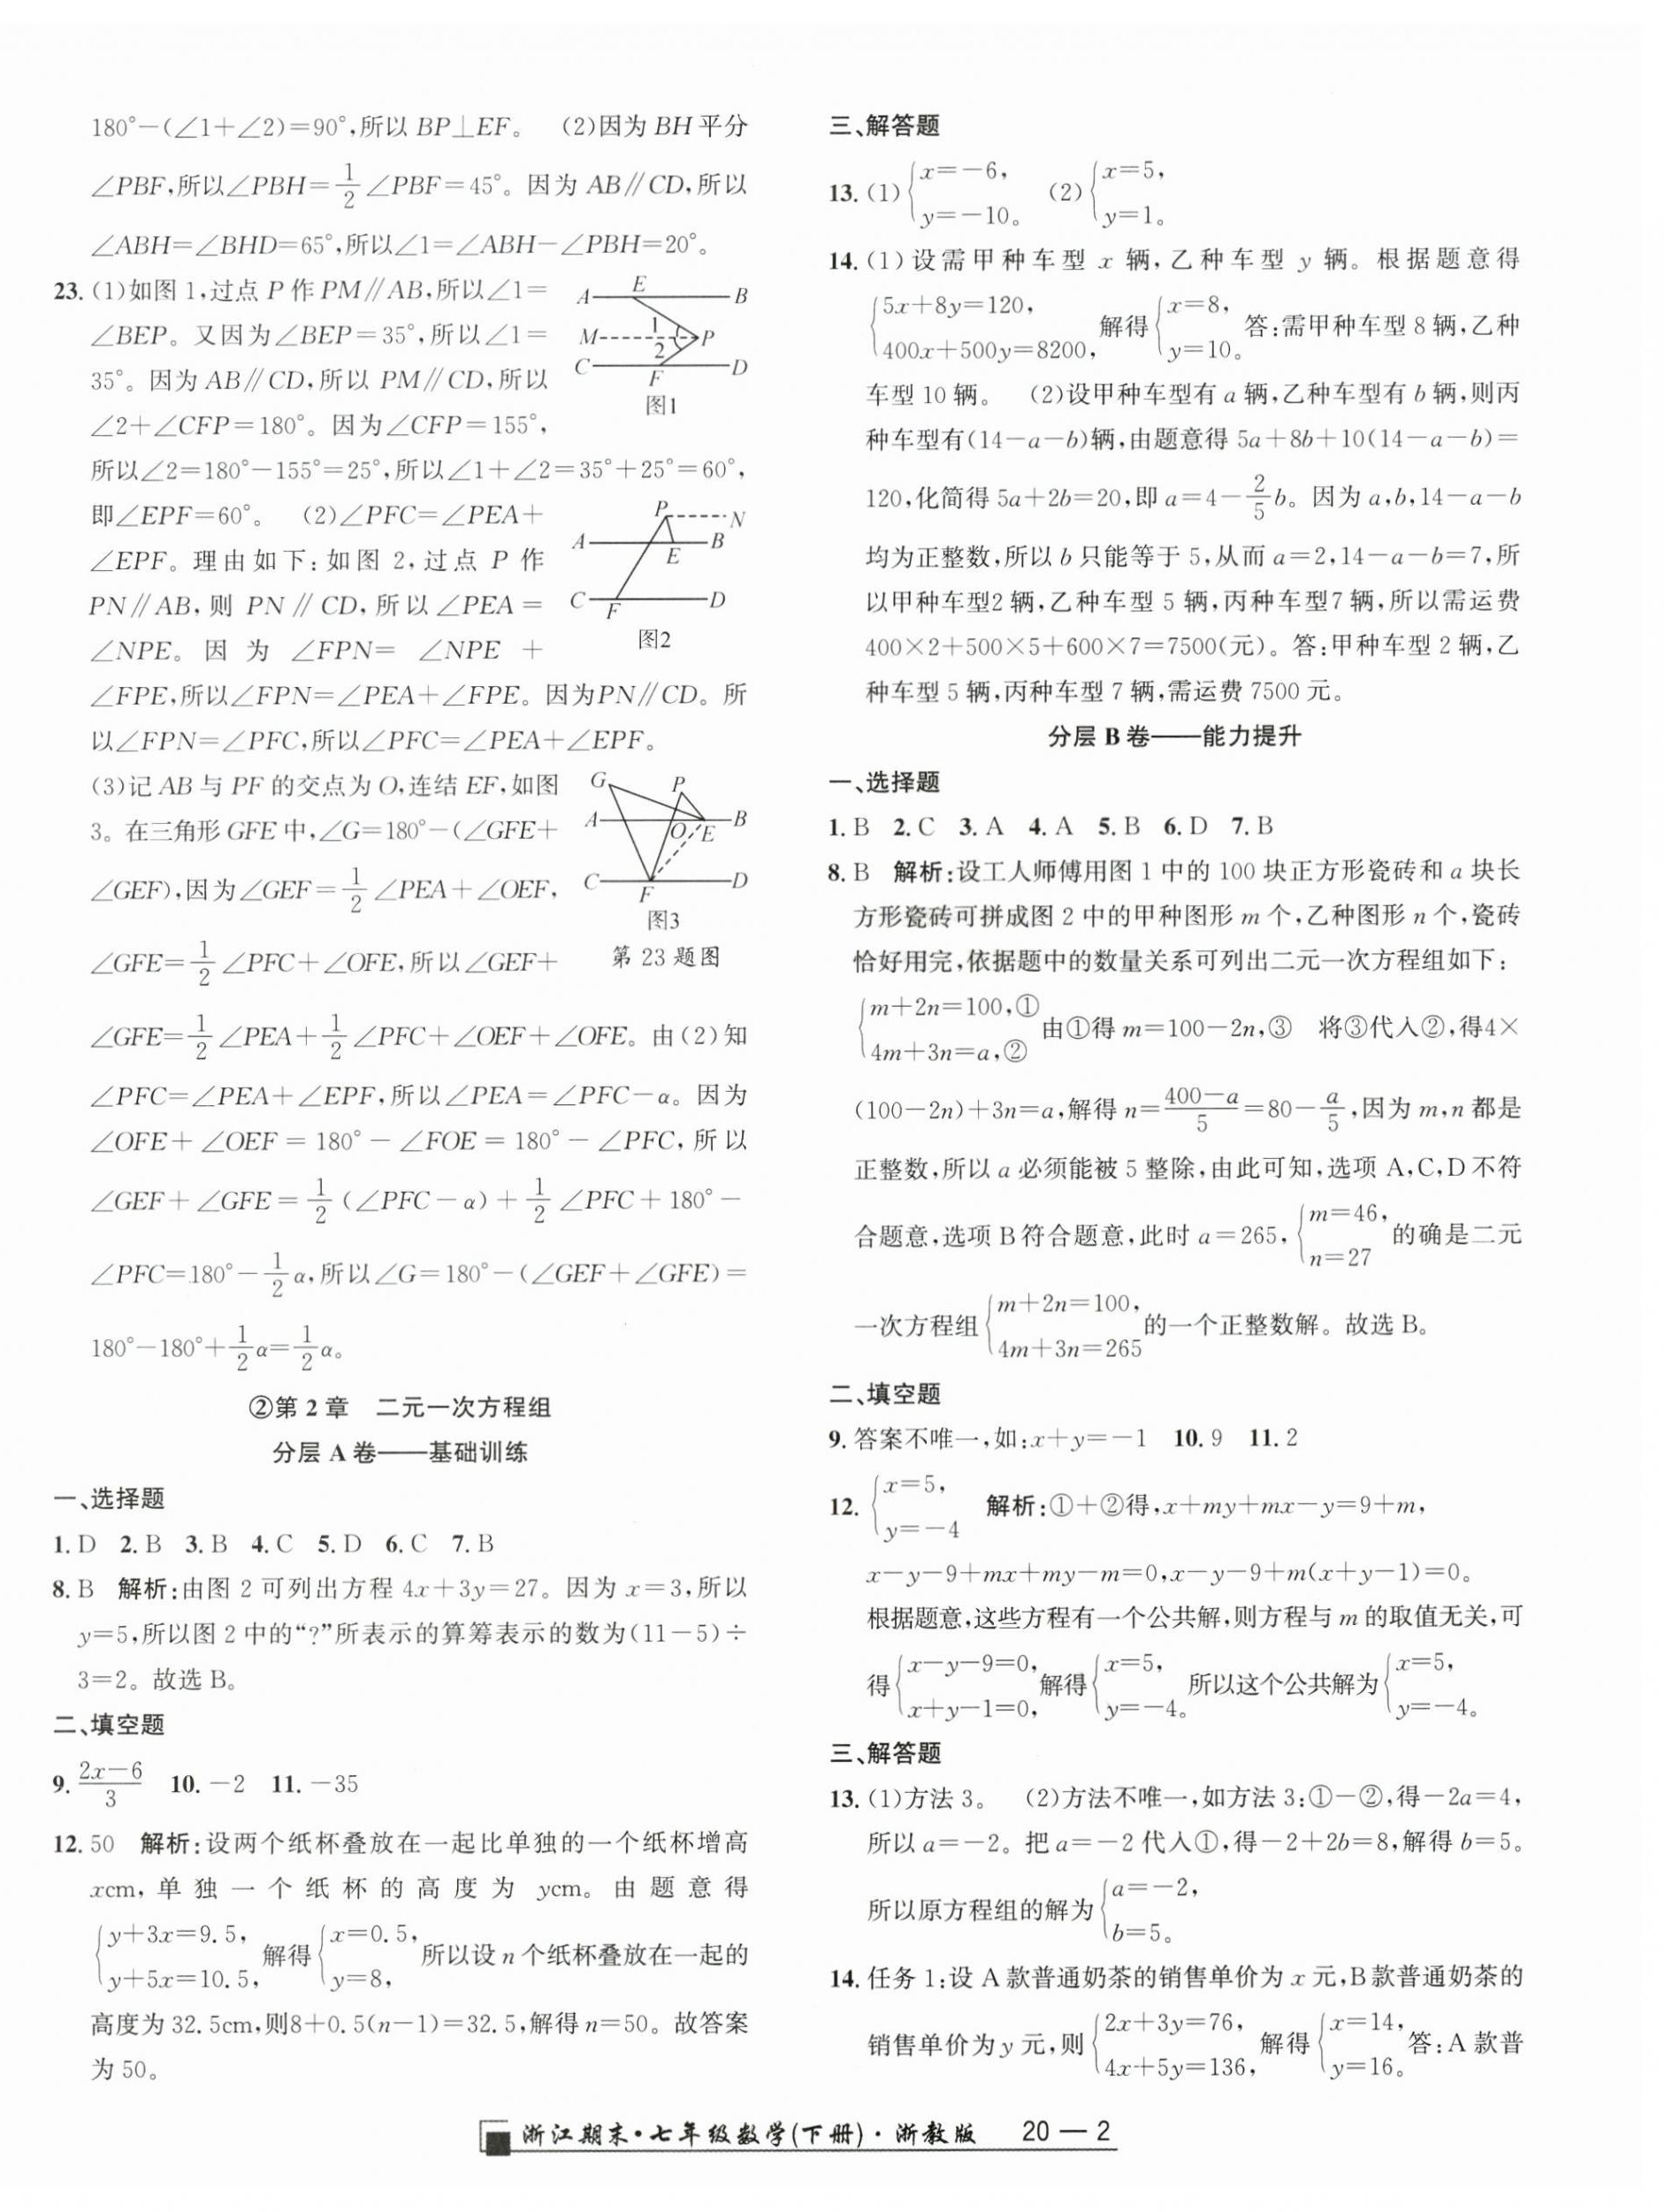 180°－(∠1＋∠2)＝90°,所以 BP⊥EF。 (2)因为 BH 平分
∠PBF,所以∠PBH＝1/2∠PBF＝45°。因为 AB∥CD,所以
∠ABH＝∠BHD＝65°,所以∠1＝∠ABH－∠PBH＝20°。
23.(1)如图 1,过点 P 作 PM∥AB,所以∠1＝
∠BEP。又因为∠BEP＝35°,所以∠1＝
35°。因为 AB∥CD,所以 PM∥CD,所以
∠2＋∠CFP＝180°。因为∠CFP＝155°,
A E B
M 1 2 P
C F D
图1
所以∠2＝180°－155°＝25°,所以∠1＋∠2＝35°＋25°＝60°,
即∠EPF＝60°。 (2)∠PFC＝∠PEA＋
∠EPF。理由如下:如图 2,过点 P 作
PN∥AB,则 PN∥CD,所以∠PEA＝
∠NPE。因为 ∠FPN＝ ∠NPE ＋
P N
A E B
C F D
图2
∠FPE,所以∠FPN＝∠PEA＋∠FPE。因为PN∥CD。所
以∠FPN＝∠PFC,所以∠PFC＝∠PEA＋∠EPF。
(3)记 AB 与 PF 的交点为 O,连结 EF,如图
3。在三角形 GFE 中,∠G＝180°－(∠GFE＋
∠GEF),因为∠GEF＝1/2∠PEA＋∠OEF,
∠GFE＝1/2∠PFC＋∠OFE,所以∠GEF＋
G P
A O E B
C F D
图3
第 23 题图
∠GFE＝1/2∠PEA＋1/2∠PFC＋∠OEF＋∠OFE。由(2)知
∠PFC＝∠PEA＋∠EPF,所以∠PEA＝∠PFC－α。因为
∠OFE＋∠OEF＝180°－∠FOE＝180°－∠PFC,所以
∠GEF＋∠GFE＝1/2(∠PFC－α)＋1/2∠PFC＋180°－
∠PFC＝180°－1/2α,所以∠G＝180°－(∠GEF＋∠GFE)＝
180°－180°＋1/2α＝1/2α。
②第 2 章 二元一次方程组
分层 A 卷——基础训练
一、选择题
1. D 2. B 3. B 4. C 5. D 6. C 7. B
8. B 解析:由图 2 可列出方程 4x＋3y＝27。因为 x＝3,所以
y＝5,所以图 2 中的“?”所表示的算筹表示的数为(11－5)÷
3＝2。故选 B。
二、填空题
9. (2x－6)/3 10. －2 11. －35
12. 50 解析:设两个纸杯叠放在一起比单独的一个纸杯增高
xcm,单独一个纸杯的高度为 ycm。由题意得
{y＋3x＝9.5, y＋5x＝10.5, 解得{x＝0.5, y＝8, 所以设 n 个纸杯叠放在一起的
高度为 32.5cm,则8＋0.5(n－1)＝32.5,解得 n＝50。故答案
为 50。
三、解答题
13.(1){x＝－6, y＝－10。 (2){x＝5, y＝1。
14.(1)设需甲种车型 x 辆,乙种车型 y 辆。根据题意得
{5x＋8y＝120, 400x＋500y＝8200, 解得{x＝8, y＝10。 答:需甲种车型 8 辆,乙种
车型 10 辆。 (2)设甲种车型有 a 辆,乙种车型有 b 辆,则丙
种车型有(14－a－b)辆,由题意得 5a＋8b＋10(14－a－b)＝
120,化简得 5a＋2b＝20,即 a＝4－2/5b。因为 a,b,14－a－b
均为正整数,所以 b 只能等于 5,从而 a＝2,14－a－b＝7,所
以甲种车型2 辆,乙种车型 5 辆,丙种车型7 辆,所以需运费
400×2＋500×5＋600×7＝7500(元)。答:甲种车型 2 辆,乙
种车型 5 辆,丙种车型 7 辆,需运费 7500 元。
分层 B 卷——能力提升
一、选择题
1. B 2. C 3. A 4. A 5. B 6. D 7. B
8. B 解析:设工人师傅用图 1 中的 100 块正方形瓷砖和 a 块长
方形瓷砖可拼成图 2 中的甲种图形 m 个,乙种图形 n 个,瓷砖
恰好用完,依据题中的数量关系可列出二元一次方程组如下:
{m＋2n＝100,① 4m＋3n＝a,② 由①得 m＝100－2n,③ 将③代入②,得4×
(100－2n)＋3n＝a,解得 n＝(400－a)/5＝80－a/5,因为 m,n 都是
正整数,所以 a 必须能被 5 整除,由此可知,选项 A,C,D不符
合题意,选项 B符合题意,此时 a＝265,{m＝46, n＝27 的确是二元
一次方程组{m＋2n＝100, 4m＋3n＝265 的一个正整数解。故选 B。
二、填空题
9. 答案不唯一,如:x＋y＝－1 10. 9 11. 2
12. {x＝5, y＝－4 解析:①＋②得,x＋my＋mx－y＝9＋m,
x－y－9＋mx＋my－m＝0,x－y－9＋m(x＋y－1)＝0。
根据题意,这些方程有一个公共解,则方程与 m 的取值无关,可
得{x－y－9＝0, x＋y－1＝0, 解得{x＝5, y＝－4。 所以这个公共解为{x＝5, y＝－4。
三、解答题
13.(1)方法 3。 (2)方法不唯一,如方法 3:①－②,得－2a＝4,
所以 a＝－2。把 a＝－2 代入①,得－2＋2b＝8,解得 b＝5。
所以原方程组的解为{a＝－2, b＝5。
14. 任务 1:设 A 款普通奶茶的销售单价为 x 元,B款普通奶茶的
销售单价为 y 元,则{2x＋3y＝76, 4x＋5y＝136, 解得{x＝14, y＝16。 答:A 款普
浙江期末·七年级数学(下册)·浙教版 20 — 2